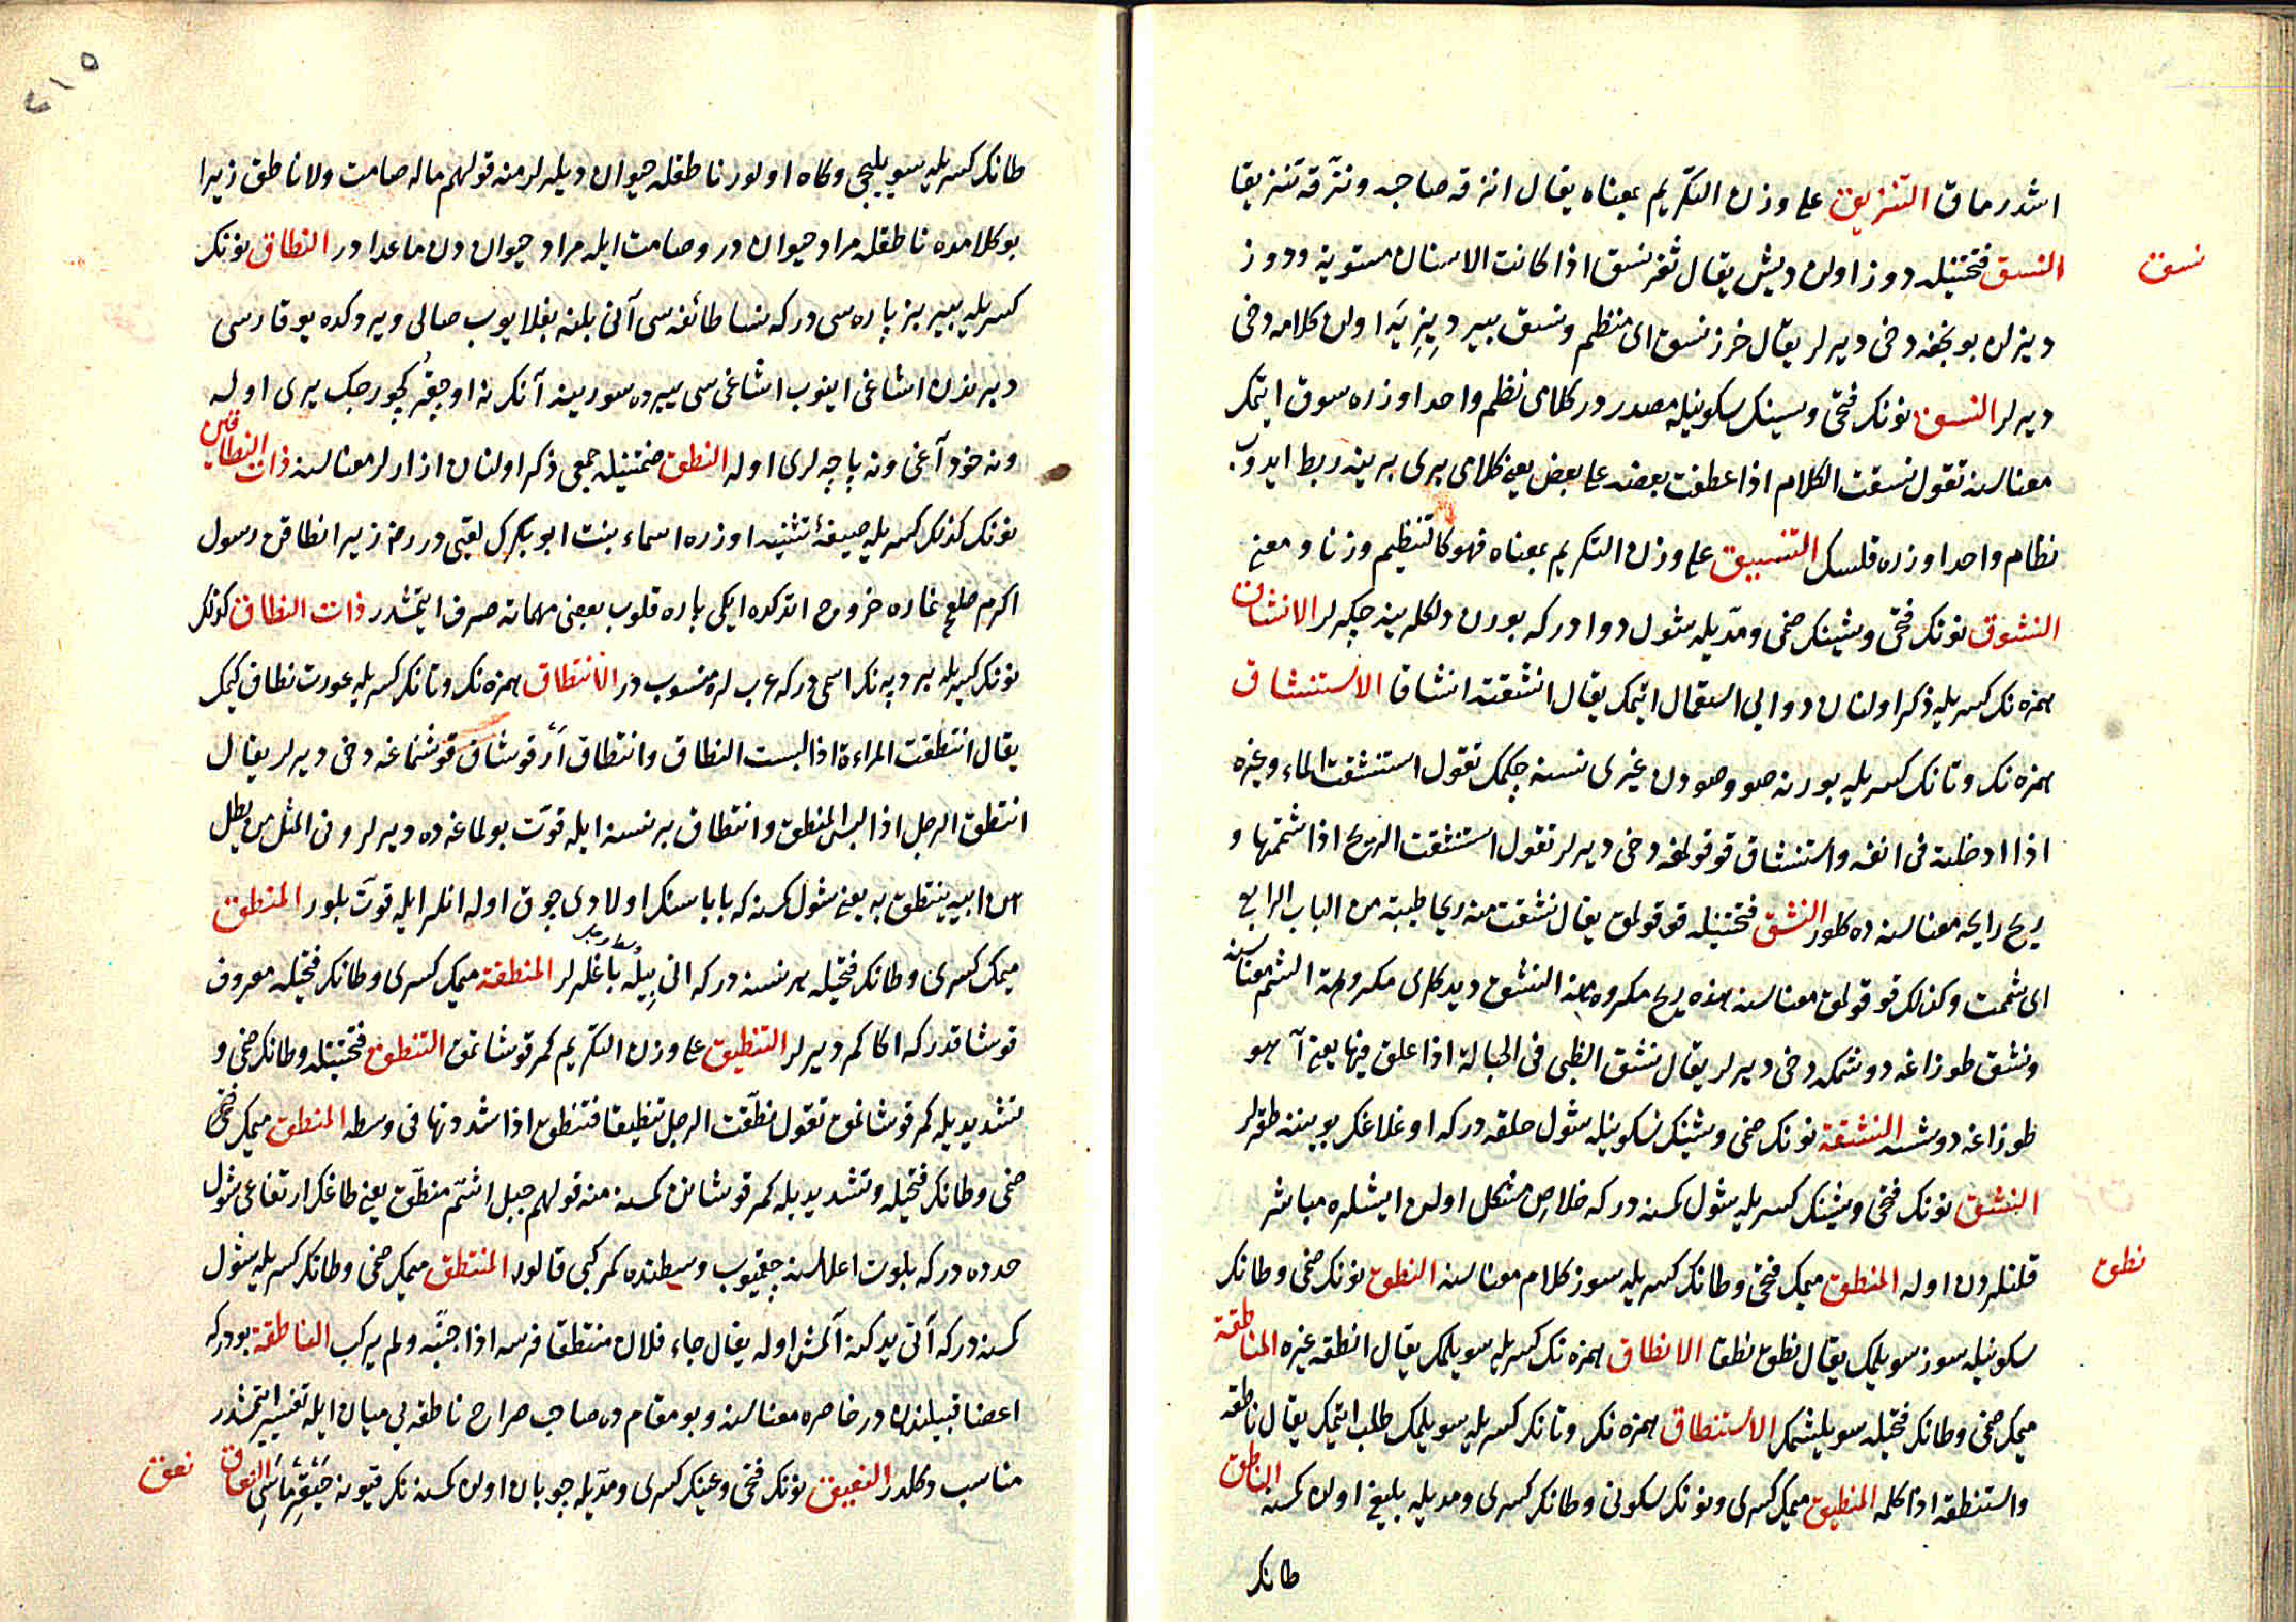 اشدرماق التنزيق على وزن التكريم بمعناه يقال انزقه صاحبه ونزّقه تنزيقا
نسق
النسق فتحتيله دوز اولن ديش يقال ثغر نسق اذا كانت الاسنان مستوية ودوز
ديزلن بونجغه دخى ديرلر يقال خرز نسق اى منظم ونسق بير ديزيه اولن كلامه دخى
ديرلر النسق نونك فتحى وسينك سكونيله مصدردر كلامى نظم واحد اوزره سوق ايتمك
معناسنه تقول نسقت الكلام اذا عطفت بعضه على بعض يعنى كلامى برى برينه ربط ايدوب
نظام واحد اوزره قلسك التنسيق على وزن التكريم بمعناه فهو كالتنظيم وزنا ومعنى
النشوق نونك فتحى وشينك ضمى ومدّيله شول دوادركه بورن دلكلرينه چكرلر الانشاق
همزه نك كسريله ذكر اولنان دوايى استعمال ايتمك يقال انشقته انشاقا الاستنشاق
همزه نك وتانك كسريله بورنه صو وصودن غيرى نسنه چكمك تقول استنشقت الماء وغيره
اذا ادخلته فى انفه واستنشاق قوقولمغه دخى ديرلر تقول استنشقت الريح اذا شممتها و
ريح رايحه معناسنه ده كلور النشق فتحتيله قوقولمق يقال نشقت منه ريحا طيبة من الباب الرابع
اى شممت وكذلك قوقولمق معناسنه هذه ريح مكروهة النشق ديدكلرى مكروهة الشم معناسنه
ونشق طوزاغه دوشمكه دخى ديرلر يقال نشق الظبى فى الحبالة اذا علق فيها يعنى آهو
طوزاغه دوشسه النشقة نونك ضمى وشينك سكونيله شول حلقه دركه اوغلاغك بويننه طقرلر
النشق نونك فتحى وشينك كسريله شول كمسنه دركه خلاص مشكل اولن ايشلره مباشر
نطق
قلنلردن اوله المنطق ميمك فتحى وطانك كسريله سوز كلام معناسنه النطق نونك ضمى وطانك
سكونيله سوز سويلمك يقال نطق نطقا الانطاق همزه نك كسريله سويلمك يقال انطقه غيره المناطقة
ميمك ضمى وطانك فتحيله سويلشمك الاستنطاق همزه نك وتانك كسريله سويلمك طلب ايتمك يقال ناطقه
واستنطقه اذا كلمه المنطيق ميمك كسرى ونونك سكونى وطانك كسرى ومديله بليغ اولن كمسنه الناطق
طانك
٢١٥
طانك كسريله سويليجى وكاه اولور ناطقله حيوان ديلرلر منه قولهم ماله صامت ولا ناطق زيرا
بو كلامده ناطقله مراد حيوان در وصامت ايله مراد حيوان دن ماعدادر النطاق نونك
كسريله بير بز پاره سى دركه نسا طائفه سى آنى بلنه بغلايوب صالى ويردكده يوقاروسى
ديزندن اشاغى اينوب اشاغى سى ييرده سورينه آنك نه اوچقر كچورجك يرى اوله
ونه خود آغى ونه پاچه لرى اوله النطق ضمتيله جمعى ذكر اولنان ازارلر معناسنه ذات النطاقين
نونك كذلك كسريله صيغۀ تثنيه اوزره اسماء بنت ابوبكرك لقبى در رض زيرا نطاقن رسول
اكرم صلعم غاره خروج اتدكده ايكى پاره قلوب بعضى مهماته صرف ايتمشدر ذات النطاق كذلك
نونك كسريله بر دپه نك اسمى دركه عرب لره منسوب در الانتطاق همزه نك وتانك كسريله عورت نطاق كيمك
يقال انتطقت المراءة اذا لبست النطاق وانتطاق ار قوشاق قوشنماغه دخى ديرلر يقال
انتطق الرجل اذا لبس المنطق وانتطاق بر نسنه ايله قوّت بولماغه ده ديرلر وفى المثل من يطل
اير ابيه ينتطق به يعنى شول كمسنه كه باباسنك اولادى چوق اوله انلر ايله قوّت بلور المنطق
ميمك كسرى وطانك فتحيله بر نسنه دركه انى بيله باغلرلر المنطقة ميمك كسرى وطانك فتحيله معروف
قوشاقدركه اكا كمر ديرلر التنطيق على وزن التكريم كمر قوشاتمق التنطق فتحتيله وطانك ضمى و
تشديديله كمر قوشانمق تقول نطّقت الرجل تنطيقا فتنطق اذا شدونها فى وسطه المنطق ميمك
ضمى وطانك فتحيله وتشديديله كمر قوشانن كمسنه منه قولهم جبل اشم منطّق يعنى طاغك ارتفاعى شول
حدده دركه بلوت اعلاسنه چقميوب وسطنده كمر كبى قالور المنتطق ميمك ضمى وطانك كسريله شول
كمسنه دركه آتى يدكنه آلمش اوله يقال جاء فلان منتطقا فرسه اذا جنبه ولم يركب الناطقة بودركه
اعضا قبيلندن در خاصره معناسنه وبو مقام ده صاحب صراح ناطقه يى ميان ايله تفسير ايتمشدر
مناسب دكلدر النعيق نونك فتحى وعينك كسرى ومدّيله چوبان اولن كمسنه نك قيونه النعاق
نعق